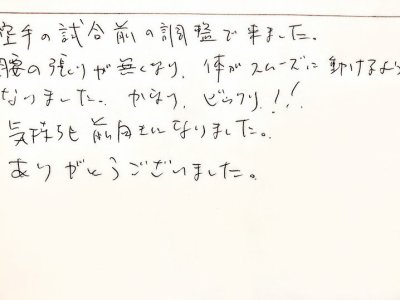 空手の試合前の調整で来ました。
腰の張りが無くなり、体がスムーズに動けるよう
なりました。かなり、ビックリ!!
気持ちも前向きになりました。
ありがとうございました。